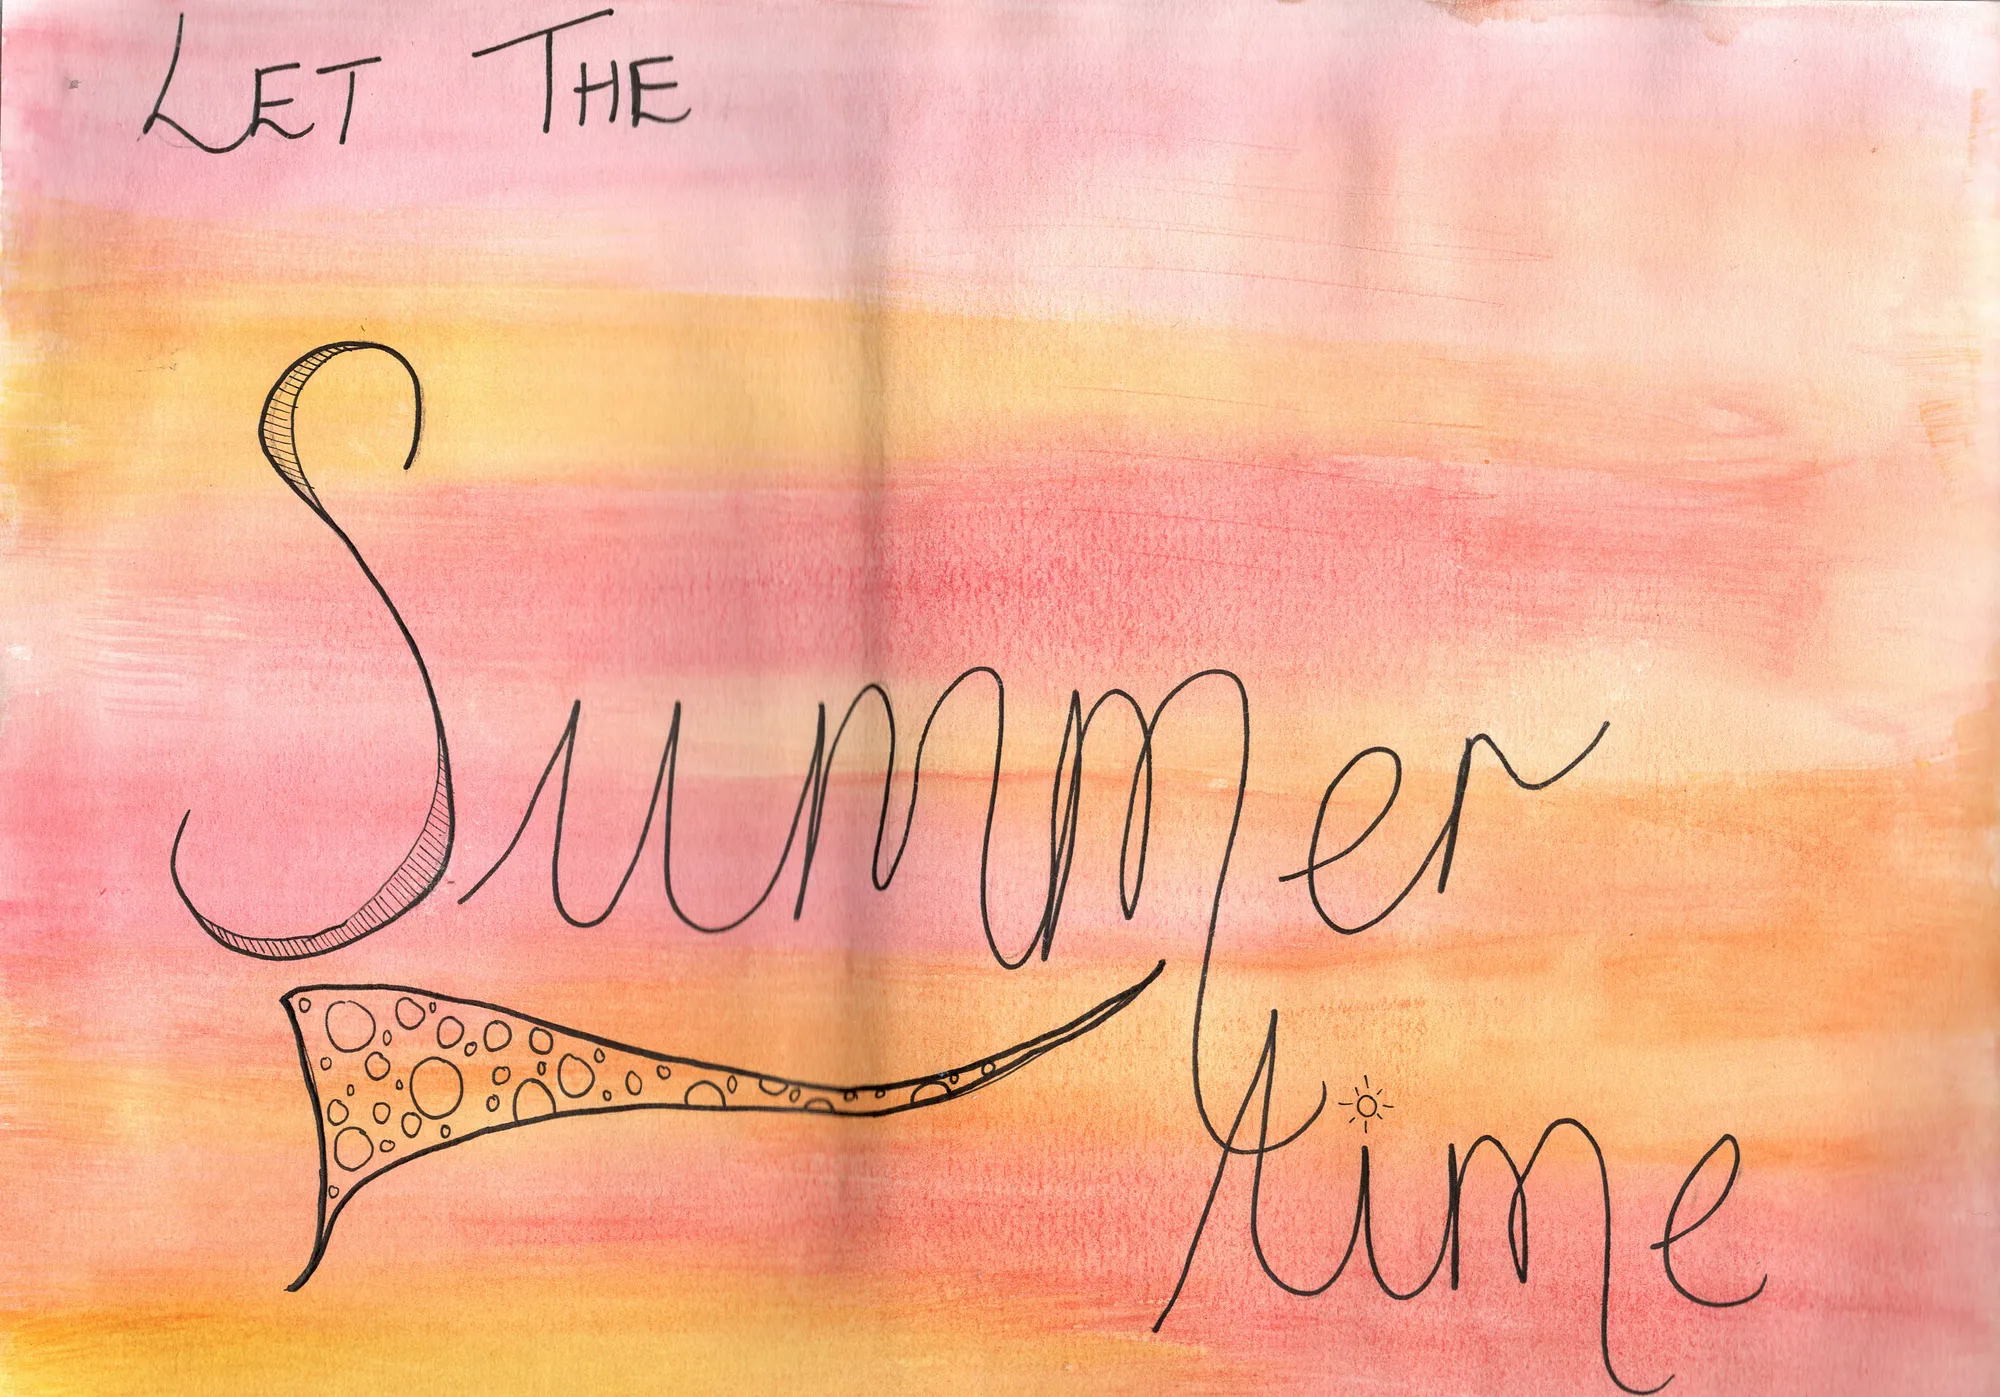 LET THE
Summer
time